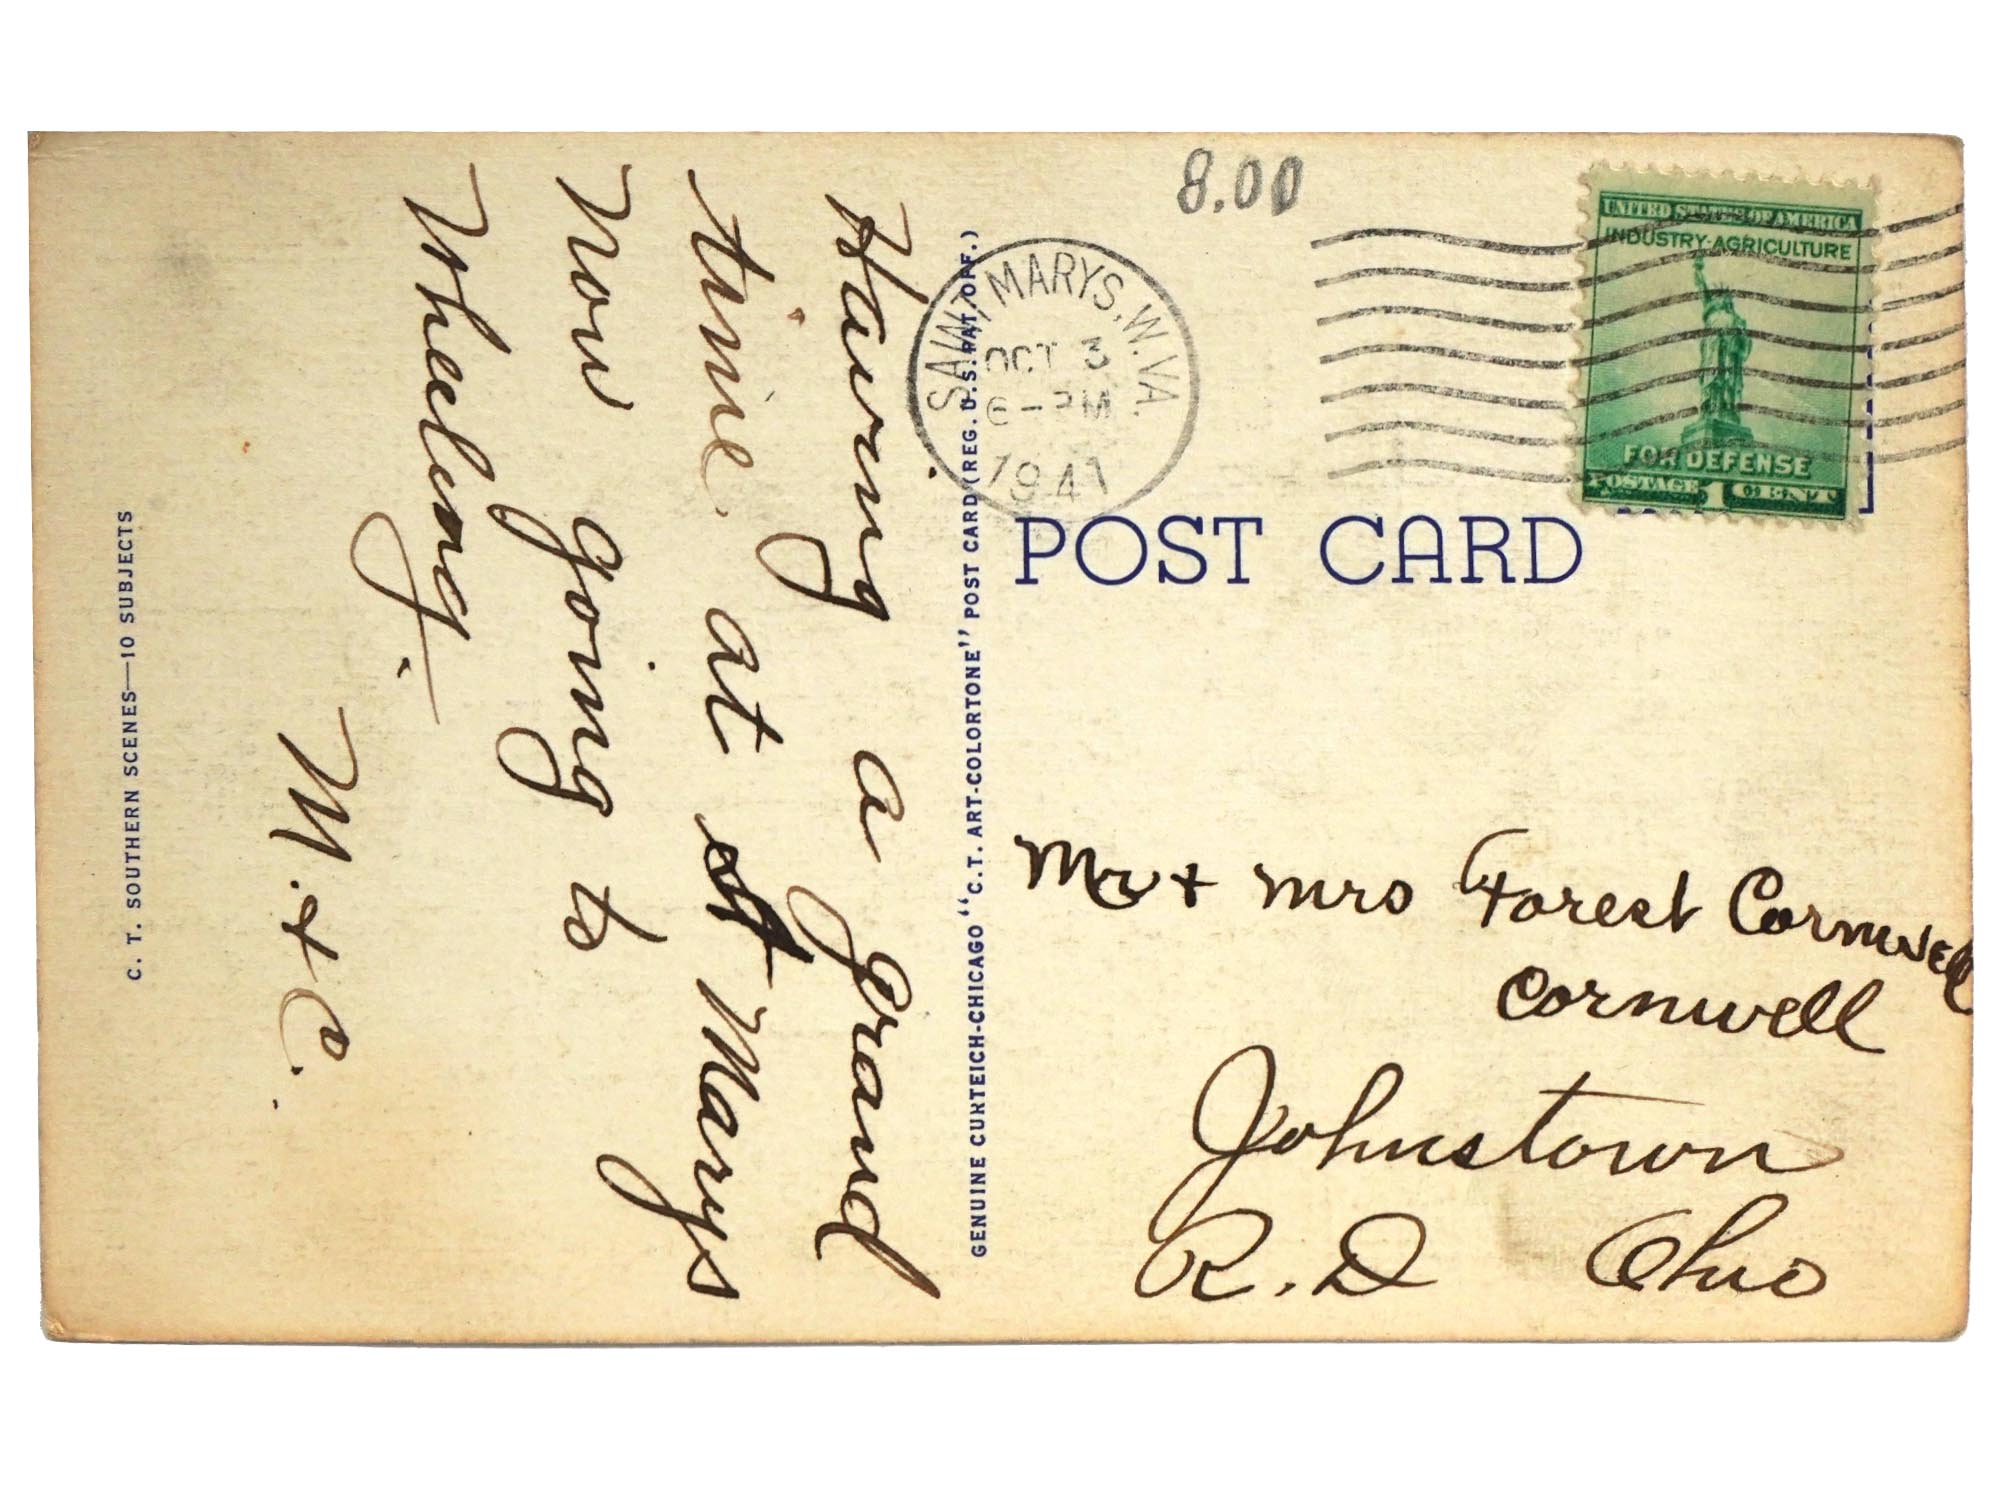 8.00
UNITED STATES OF AMERICA
INDUSTRY·AGRICULTURE
FOR DEFENSE
POSTAGE 1 CENT
SAINT MARYS, W. VA.
OCT 3
6 - PM
1941
POST CARD
Having a grand
time at St Marys
Now going to
Wheeling.
M. + C.
Mr + Mrs Forest Cornwell
Cornwell
Johnstown
R. D Ohio
GENUINE CURTEICH-CHICAGO "C. T. ART-COLORTONE" POST CARD (REG. U.S. PAT. OFF.)
C. T. SOUTHERN SCENES—10 SUBJECTS